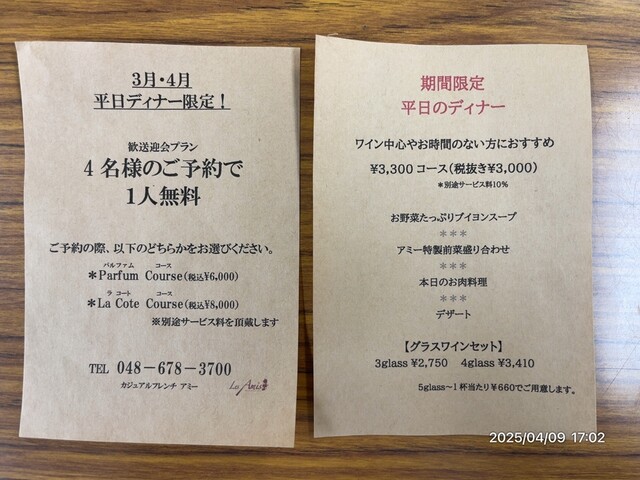 3月・4月
平日ディナー限定！
歓送迎会プラン
4名様のご予約で
1人無料
ご予約の際、以下のどちらかをお選びください。
パルファム コース
＊Parfum Course(税込¥6,000)
ラ コート コース
＊La Cote Course(税込¥8,000)
※別途サービス料を頂戴します
TEL 048－678－3700
カジュアルフレンチ アミー
Les Amis
期間限定
平日のディナー
ワイン中心やお時間のない方におすすめ
¥3,300コース(税抜き¥3,000)
＊別途サービス料10％
お野菜たっぷりブイヨンスープ
＊＊＊
アミー特製前菜盛り合わせ
＊＊＊
本日のお肉料理
＊＊＊
デザート
【グラスワインセット】
3glass ¥2,750 4glass ¥3,410
5glass～1杯当たり¥660でご用意します。
2025/04/09 17:02